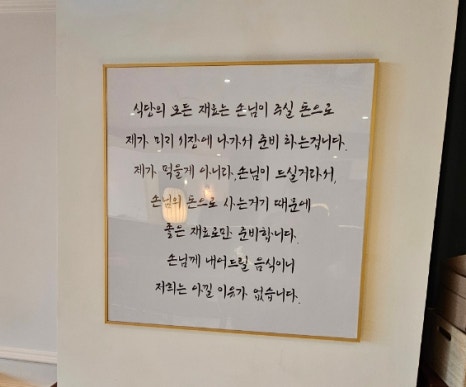 식당의 모든 재료는 손님이 주실 돈으로
제가 미리 시장에 나가서 준비 하는겁니다.
제가 먹을게 아니라, 손님이 드실거라서,
손님의 돈으로 사는거기 때문에
좋은 재료로만 준비합니다.
손님께 내어드릴 음식이니
저희는 아낄 이유가 없습니다.